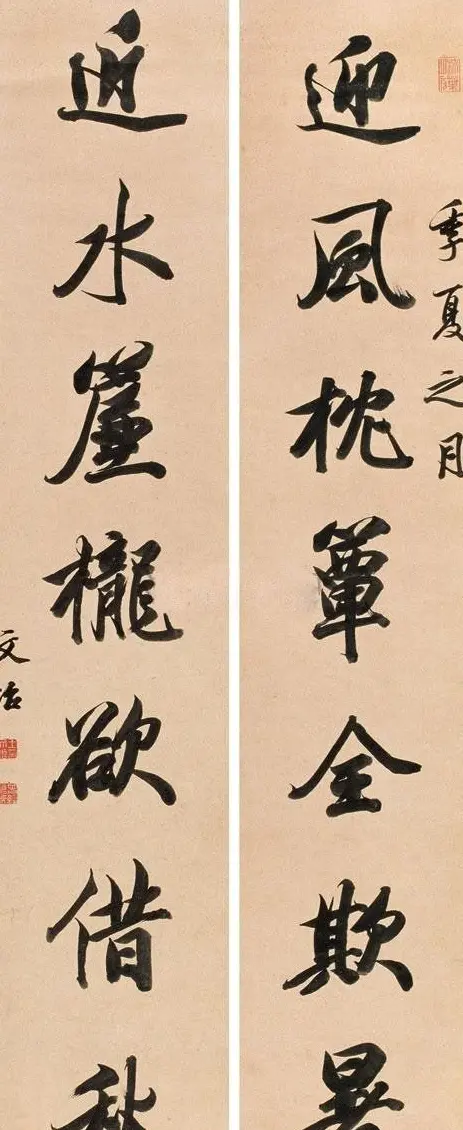 季夏之月
迎風枕簟全欺暑
近水簾櫳欲借秋
文治